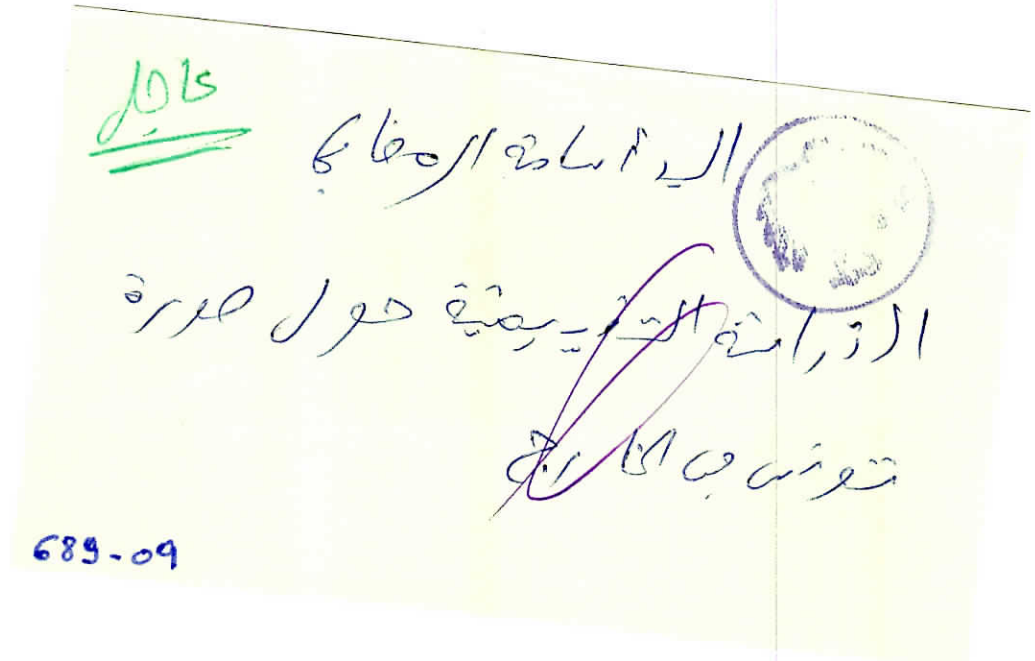 عاجل
السيد أسامة الرمضاني
الدراسة التقييمية حول صورة
تونس في الخارج
689-09